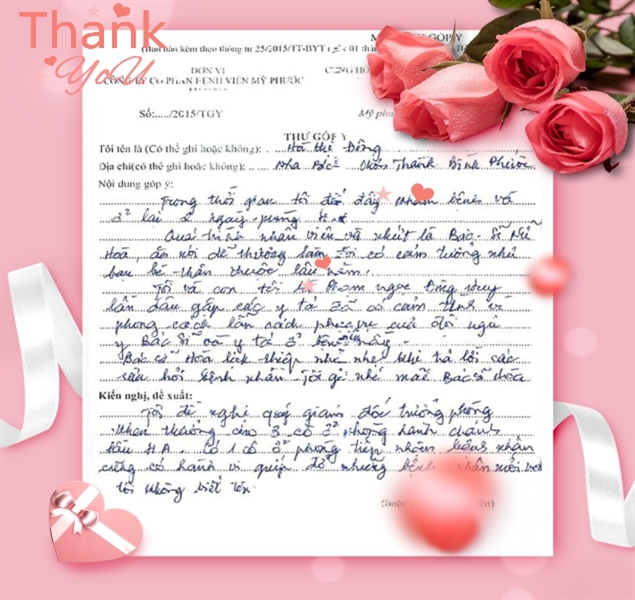 Thank
YoU
GÓP Y
(Ban hành kèm theo thông tư 25/2015/TT-BYT 01
ĐƠN VỊ
CÔNG TY CỔ PHẦN BỆNH VIỆN MỸ PHƯỚC
CỘNG HÒ
Số:...../2015/TGY
Mỹ ph
THƯ GÓP Ý
Tôi tên là (Có thể ghi hoặc không): Hà thế Đông
Địa chỉ(có thể ghi hoặc không): Nha Bích Chơn Thành Bình Phước
Nội dung góp ý:
Trong thời gian tôi đến đây khám bệnh và
ở lại 2 ngày
Quá trình nhân viên và nhất là Bác Sĩ Nữ
Hoà, ăn nói dễ thương làm tôi có cảm tưởng như
bạn bè thân thuộc lâu năm.
Tôi và con tôi ngọc
lần đầu gặp các y tá đã có cảm tình về
phong cách lẫn cách phục vụ của đội ngũ
y Bác Sĩ và y tá ở bệnh
Bác sĩ Hoà lịch thiệp nhẹ nhẹ khi trả lời các
câu hỏi bệnh nhân Tôi nhớ mãi Bác Sĩ Hòa
Kiến nghị, đề xuất:
Tôi đề nghị quý giám đốc trưởng phòng
khen thưởng cho 3 cô ở phòng hành chánh
H A. Có 1 cô ở phòng tiếp nhận bệnh nhân
cũng có hành vi giúp đỡ những bệnh nhân
tôi không biết tên.
(hoặc ên)